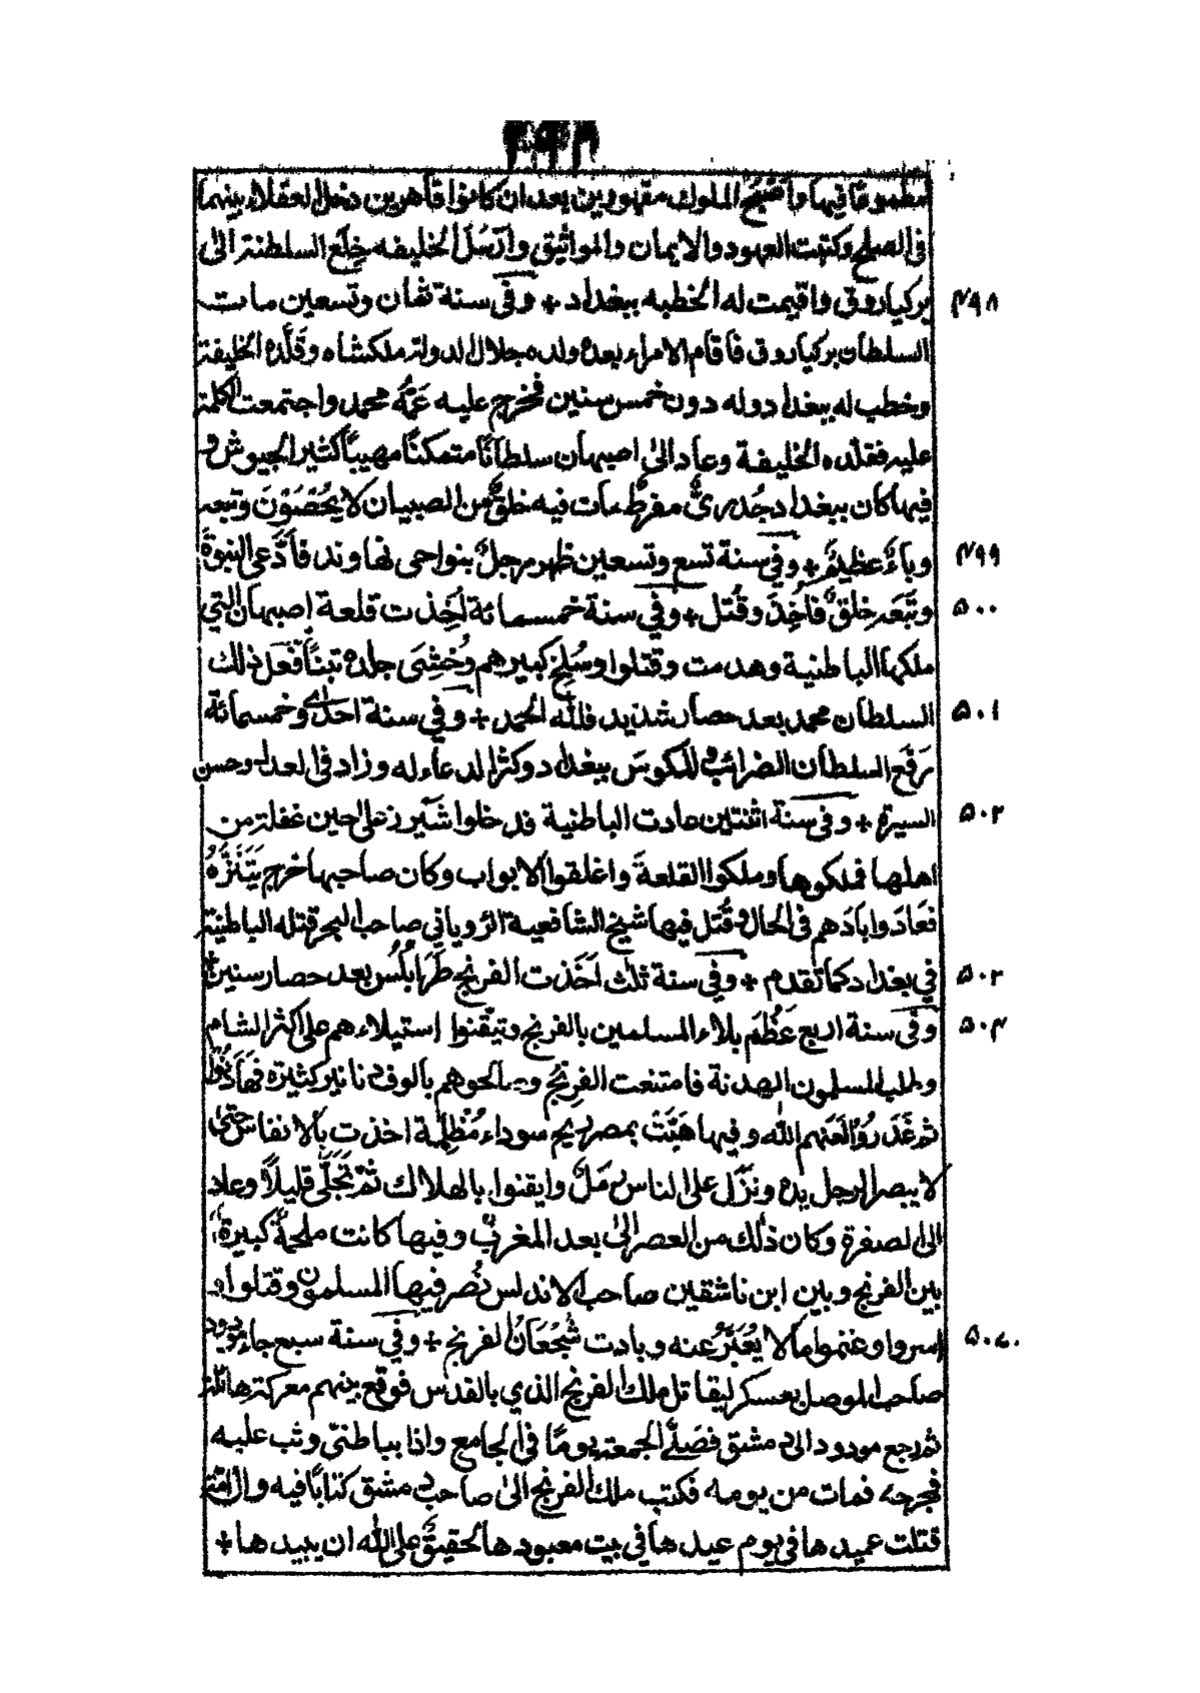 مطموعا فيها وأصبح الملوك مقهورين بعد ان كانوا قاهرين دخل العقلاء بينهما
فى الصلح وكتبت العهود والايمان والمواثيق وارسل الخليفه خلع السلطنة الى
بركياروق واقيمت له الخطبه ببغداد + وفى سنة ثمان وتسعين مات ۴۹۸
السلطان بركياروق فاقام الامراء بعده ولده جلال الدولة ملكشاه وقلده الخليفة
وخطب له ببغداد وله دون خمس سنين فخرج عليه عمّه محمد واجتمعت الكلمة
عليه فقلده الخليفة وعاد الى اصبهان سلطانًا متمكنًا مهيبًا كثير الجيوش و
فيها كان ببغداد جُدرىٌّ مفرطٌ مات فيه خلقٌ من الصبيان لا يُحْصَوْنَ وتبعه
وباءٌ عظيمٌ + وفى سنة تسع وتسعين ظهر رجلٌ بنواحى نهاوند فادَّعى النبوةَ ۴۹۹
وتبعه خلقٌ فاُخِذَ وقُتل + وفى سنة خمسمائة اُخِذت قلعة اصبهان التي ۵۰۰
ملكها الباطنية وهدمت وقتلوا وسُلِخ كبيرهم وحُشِىَ جلده تبنًا فعل ذلك
السلطان محمد بعد حصار شديد فلله الحمد + وفى سنة احدى وخمسمائة ۵۰۱
رَفَع السلطان الضرائب والمكوس ببغداد وكثر الدعاء له وزاد فى العدل وحسن
السيرة + وفى سنة اثنتين عادت الباطنية فدخلوا شيرز على حين غفلة من ۵۰۲
اهلها فملكوها وملكوا القلعةَ واغلقوا الابواب وكان صاحبها خرج يَتَنَزَّهُ
فعادَ وابادَهم فى الحال وقُتل فيها شيخ الشافعية الرويانى صاحب البحر قتله الباطنية
في بغداد كما تقدم + وفى سنة ثلث اَخَذت الفرنج طَرَابُلُس بعد حصار سنين + ۵۰۳
وفى سنة اربع عَظُمَ بلاء المسلمين بالفرنج وتيقنوا إستيلاءهم على اكثر الشام ۵۰۴
وطلب المسلمون الهدنة فامتنعت الفرنجُ وصالحوهم بالوف دنانير كثيرة فهَادَنُوا
ثم غَدَروا لَعَنهم الله وفيها هَبَّتْ بمصر ريح سوداء مُظْلِمة اخذت بالانفاس حتى
لا يبصر الرجل يده ونَزَلَ على الناس رَمْلٌ وايقنوا بالهلاك ثم تَجَلَّى قليلًا وعاد
الى الصفرة وكان ذلك من العصر الى بعد المغرب وفيها كانت ملحمةٌ كبيرةٌ
بين الفرنج وبين ابن تاشقين صاحب الاندلس نُصر فيها المسلمون وقتلوا و
اسروا وغنموا ما لا يُعَبَّرُ عنه وبادت شُجْعَانُ الفرنج + وفى سنة سبع جاء مودود ۵۰۷
صاحب الموصل بعسكر ليقاتل ملك الفرنج الذي بالقدس فوقع بينهم معركة هائلة
ثم رجع مودود الى دمشق فصَلَّى الجمعة يومًا فى الجامع واذا بباطنىّ وثب عليه
فجرحه فمات من يومه فكتب ملك الفرنج الى صاحب دمشق كتابًا فيه وان امّة
قتلت عميدها فى يوم عيدها فى بيت معبودها لحقيقٌ على الله ان يبيدها +